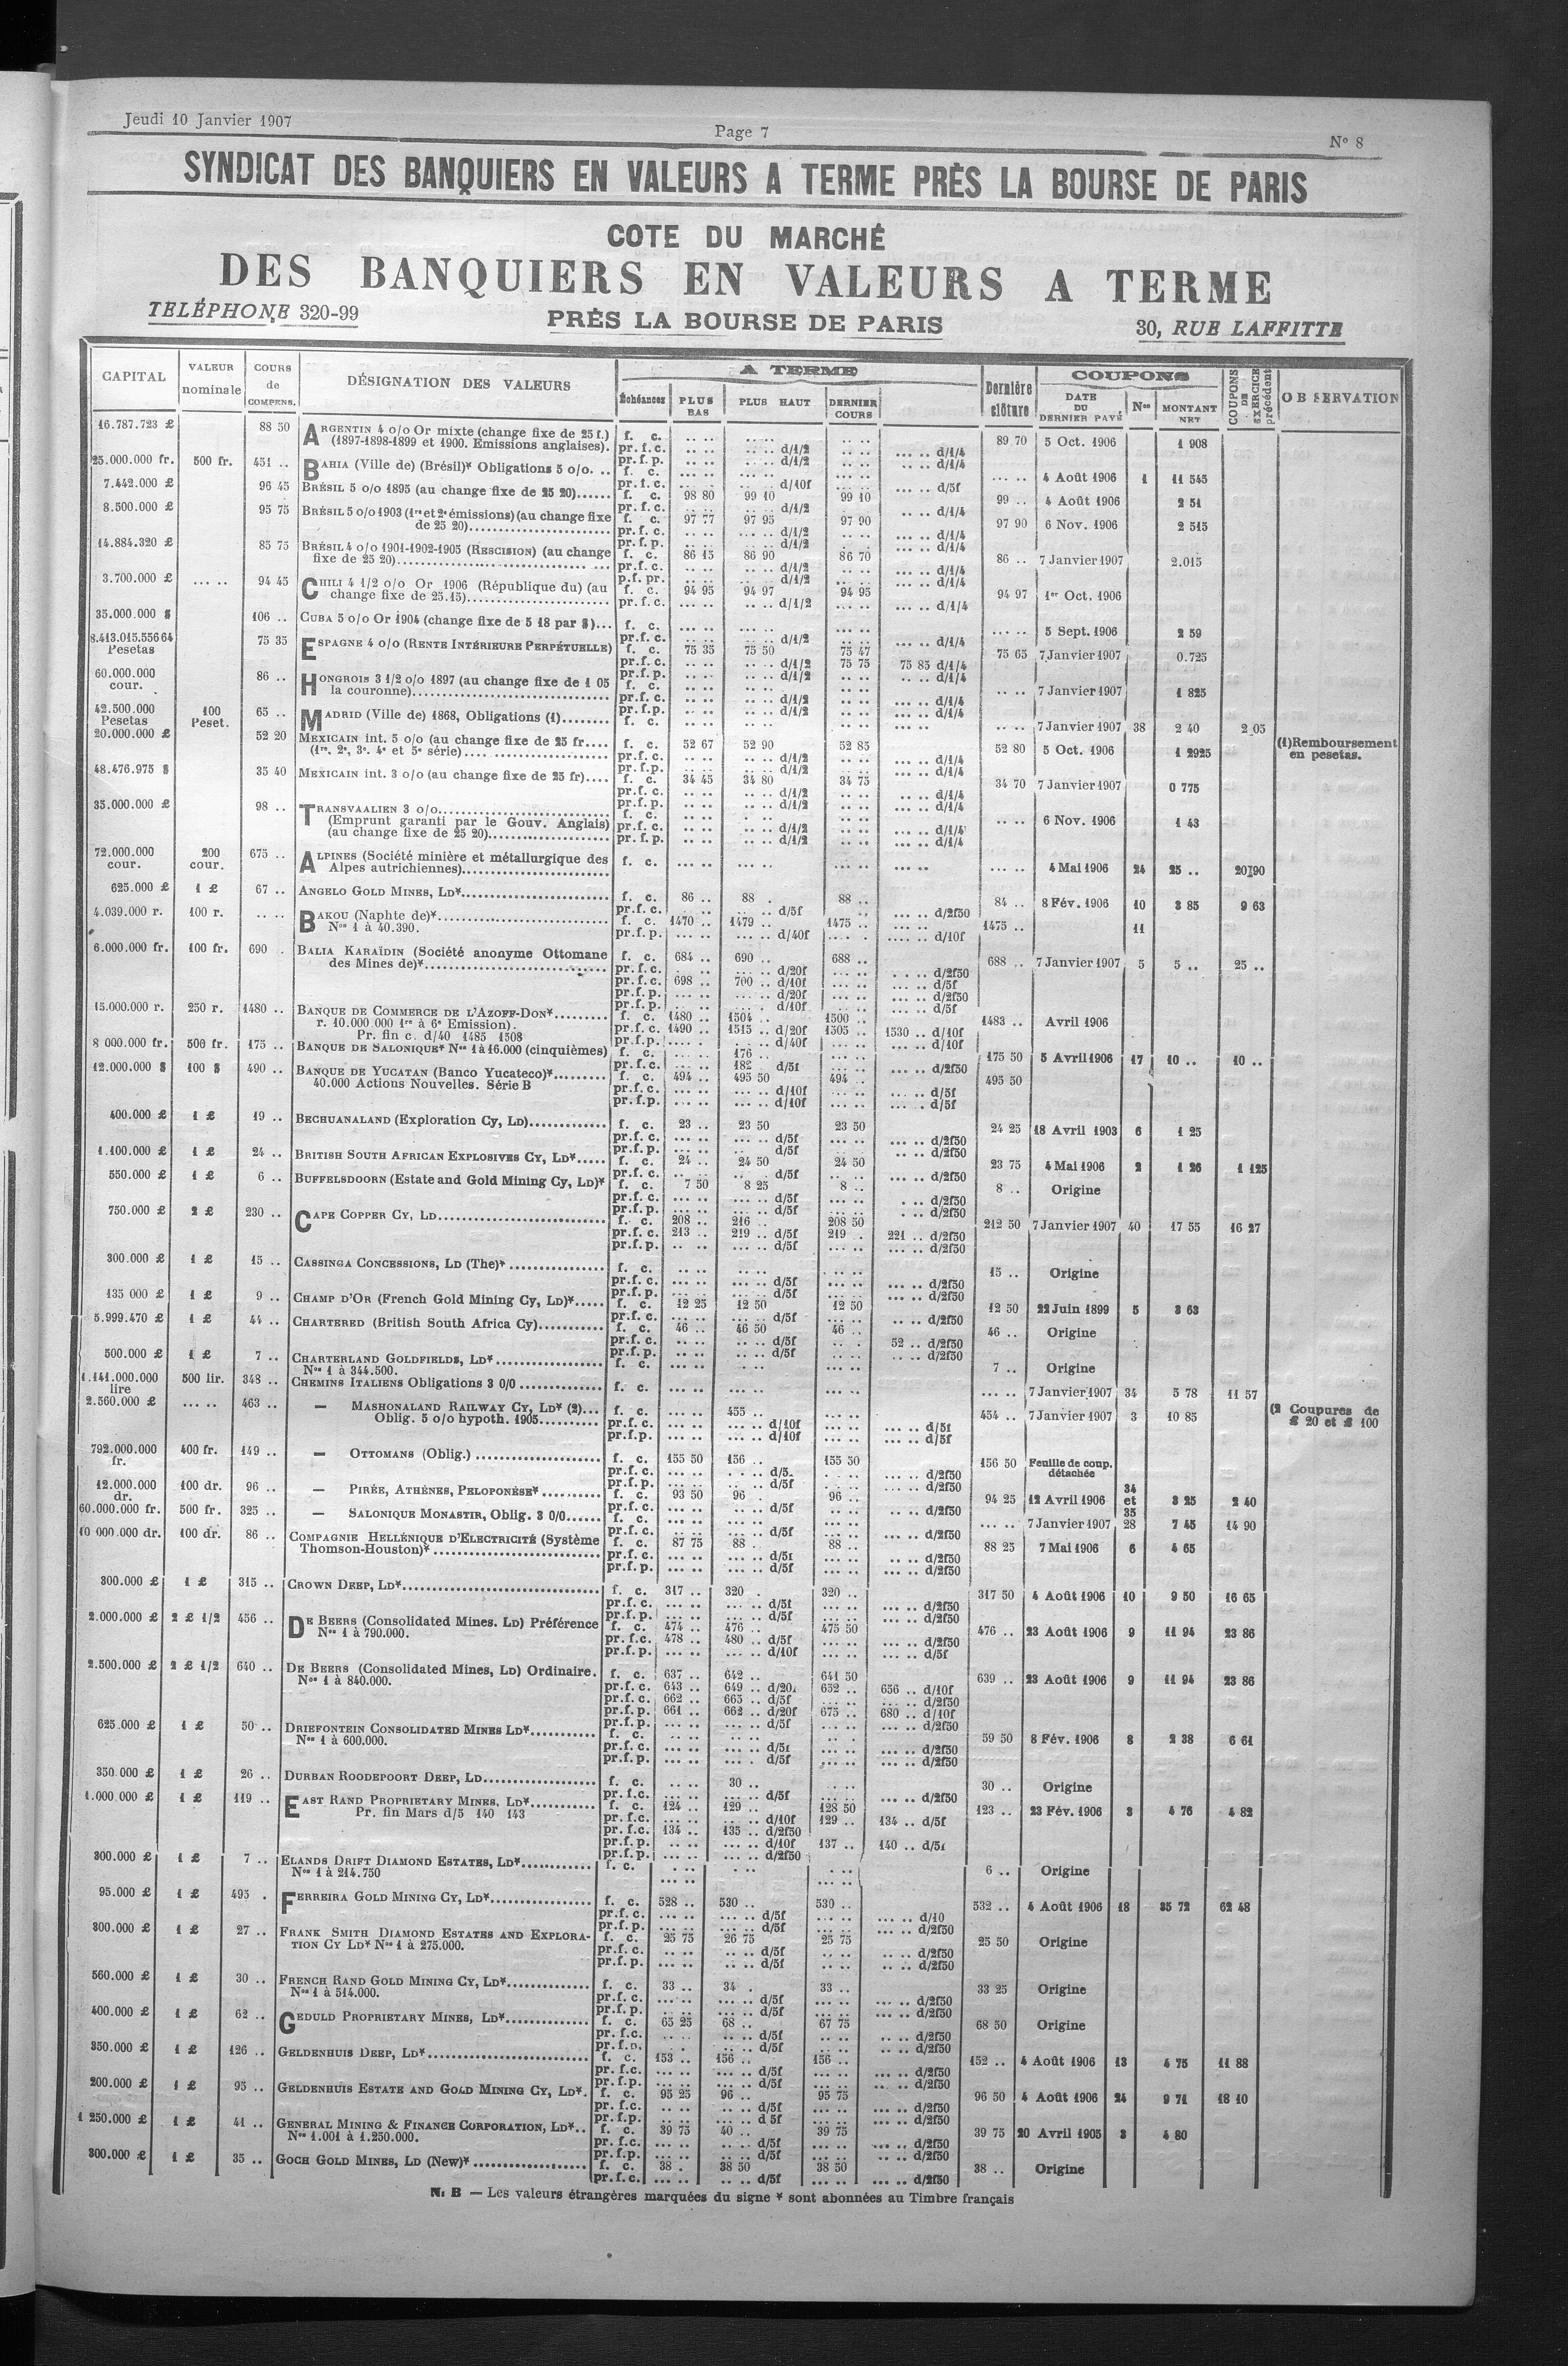 Jeudi 10 Janvier 1907
Page 7
Nº 8
SYNDICAT DES BANQUIERS EN VALEURS A TERME PRÈS LA BOURSE DE PARIS
COTE DU MARCHÉ
DES BANQUIERS EN VALEURS A TERME
TELÉPHONE 320-99
PRÈS LA BOURSE DE PARIS
30, RUE LAFFITTE
CAPITAL VALEUR nominale COURS de COMPENS. DÉSIGNATION DES VALEURS A TERME Échéances PLUS BAS PLUS HAUT DERNIER COURS Dernière clôture COUPONS DATE DU DERNIER PAYÉ Nos MONTANT NET COUPONS DE EXERCICE précédent OBSERVATION
16.787.723 £ 88 50 ARGENTIN 4 o/o Or mixte (change fixe de 25 f.) f. c. 89 70 5 Oct. 1906 1 908
(1897-1898-1899 et 1900. Emissions anglaises). pr. f. c. d/1/2 d/1/4
pr. f. p. d/1/2 d/1/4
25.000.000 fr. 500 fr. 451 .. BAHIA (Ville de) (Brésil)* Obligations 5 o/o. .. f. c. 4 Août 1906 1 11 545
pr. f. c. d/10f d/5f
7.442.000 £ 96 45 BRÉSIL 5 o/o 1895 (au change fixe de 25 20)...... f. c. 98 80 99 10 99 10 99 .. 4 Août 1906 2 51
pr. f. c. d/1/2 d/1/4
8.500.000 £ 95 75 BRÉSIL 5 o/o 1903 (1re et 2e émissions) (au change fixe f. c. 97 77 97 95 97 90 97 90 6 Nov. 1906 2 515
de 25 20) pr. f. c. d/1/2 d/1/4
pr. f. p. d/1/2 d/1/4
14.884.320 £ 85 75 BRÉSIL 4 o/o 1901-1902-1905 (RESCISION) (au change f. c. 86 15 86 90 86 70 86 .. 7 Janvier 1907 2.015
fixe de 25 20) pr. f. c. d/1/2 d/1/4
p. f. pr. d/1/2 d/1/4
3.700.000 £ 94 45 CHILI 4 1/2 o/o Or 1906 (République du) (au f. c. 94 95 94 97 94 95 94 97 1er Oct. 1906
change fixe de 25.15) pr. f. c. d/1/2 d/1/4
35.000.000 $ 106 .. CUBA 5 o/o Or 1904 (change fixe de 5 18 par $)... f. c. 5 Sept. 1906 2 59
pr. f. c. d/1/2 d/1/4
8.413.015.556 64 Pesetas 75 35 ESPAGNE 4 o/o (RENTE INTÉRIEURE PERPÉTUELLE) f. c. 75 35 75 50 75 47 75 65 7 Janvier 1907 0.725
pr. f. c. d/1/2 75 75 75 85 d/1/4
pr. f. p. d/1/2 d/1/4
60.000.000 cour. 86 .. HONGROIS 3 1/2 o/o 1897 (au change fixe de 1 05 f. c. 7 Janvier 1907 1 825
la couronne) pr. f. c. d/1/2 d/1/4
pr. f. p. d/1/2 d/1/4
42.500.000 Pesetas 100 Peset. 65 .. MADRID (Ville de) 1868, Obligations (1)........ f. c. 7 Janvier 1907 38 2 40 2 05
20.000.000 £ 52 20 MEXICAIN int. 5 o/o (au change fixe de 25 fr.... f. c. 52 67 52 90 52 85 52 80 5 Oct. 1906 1 2925 (1) Remboursement en pesetas.
(1re, 2e, 3e, 4e et 5e série) pr. f. c. d/1/2 d/1/4
pr. f. p. d/1/2 d/1/4
48.476.975 $ 35 40 MEXICAIN int. 3 o/o (au change fixe de 25 fr).... f. c. 34 45 34 80 34 75 34 70 7 Janvier 1907 0 775
pr. f. c. d/1/2 d/1/4
pr. f. p. d/1/2 d/1/4
35.000.000 £ 98 .. TRANSVAALIEN 3 o/o f. c. 6 Nov. 1906 1 43
(Emprunt garanti par le Gouv. Anglais) pr. f. c. d/1/2 d/1/4
(au change fixe de 25 20) pr. f. p. d/1/2 d/1/4
72.000.000 cour. 200 cour. 675 .. ALPINES (Société minière et métallurgique des f. c. 4 Mai 1906 24 25 .. 20 90
Alpes autrichiennes)
625.000 £ 1 £ 67 .. ANGELO GOLD MINES, LD* f. c. 86 .. 88 . 88 .. 84 .. 8 Fév. 1906 10 3 85 9 63
pr. f. c. d/5f d/2f50
4.039.000 r. 100 r. BAKOU (Naphte de)* f. c. 1470 .. 1479 .. 1475 .. 1475 .. 11
Nos 1 à 40.390. pr. f. p. d/40f d/10f
6.000.000 fr. 100 fr. 690 . BALIA KARAÏDIN (Société anonyme Ottomane f. c. 684 .. 690 .. 688 .. 688 .. 7 Janvier 1907 5 5 .. 25 ..
des Mines de)* pr. f. c. d/20f d/2f50
pr. f. c. 698 .. 700 .. d/10f d/5f
pr. f. p. d/20f d/2f50
pr. f. p. d/10f d/5f
15.000.000 r. 250 r. 1480 .. BANQUE DE COMMERCE DE L'AZOFF-DON* f. c. 1480 .. 1504 .. 1500 .. 1483 .. Avril 1906
r. 10.000.000 1re à 6e Emission). pr. f. c. 1490 .. 1515 .. d/20f 1505 .. 1530 .. d/10f
Pr. fin c. d/40 1485 1508 pr. f. p. d/40f d/10f
8 000.000 fr. 500 fr. 175 .. BANQUE DE SALONIQUE* Nos 1 à 16.000 (cinquièmes) f. c. 176 .. 175 50 5 Avril 1906 17 10 .. 10 ..
pr. f. c. 182 d/5f d/2f50
12.000.000 $ 100 $ 490 .. BANQUE DE YUCATAN (Banco Yucateco)* f. c. 494 .. 495 50 494 .. 495 50
40.000 Actions Nouvelles. Série B pr. f. c. d/10f d/5f
pr. f. p. d/10f d/5f
400.000 £ 1 £ 19 .. BECHUANALAND (Exploration Cy, LD) f. c. 23 .. 23 50 23 50 24 25 18 Avril 1903 6 1 25
pr. f. c. d/5f d/2f50
pr. f. p. d/5f d/2f50
1.100.000 £ 1 £ 24 .. BRITISH SOUTH AFRICAN EXPLOSIVES CY, LD* f. c. 24 .. 24 50 24 50 23 75 4 Mai 1906 2 1 26 1 125
pr. f. c. d/5f d/2f50
550.000 £ 1 £ 6 .. BUFFELSDOORN (Estate and Gold Mining Cy, LD)* f. c. 7 50 8 25 8 .. 8 .. Origine
pr. f. c. d/5f d/2f50
pr. f. p. d/5f d/2f50
750.000 £ 2 £ 230 .. CAPE COPPER CY, LD f. c. 208 .. 216 .. 208 50 212 50 7 Janvier 1907 40 17 55 16 27
pr. f. c. 213 .. 219 .. d/5f 219 .. 221 .. d/2f50
pr. f. p. d/5f d/2f50
300.000 £ 1 £ 15 .. CASSINGA CONCESSIONS, LD (The)* f. c. 15 .. Origine
pr. f. c. d/5f d/2f50
pr. f. p. d/5f d/2f50
135 000 £ 1 £ 9 .. CHAMP D'OR (French Gold Mining Cy, LD)* f. c. 12 25 12 50 12 50 12 50 22 Juin 1899 5 3 63
pr. f. c. d/5f d/2f50
5.999.470 £ 1 £ 44 .. CHARTERED (British South Africa Cy) f. c. 46 .. 46 50 46 .. 46 .. Origine
pr. f. c. d/5f 52 .. d/2f50
pr. f. p. d/5f d/2f50
500.000 £ 1 £ 7 .. CHARTERLAND GOLDFIELDS, LD* f. c. 7 .. Origine
Nos 1 à 344.500.
1.141.000.000 lire 500 lir. 348 .. CHEMINS ITALIENS Obligations 3 0/0 f. c. 7 Janvier 1907 34 5 78 11 57
2.560.000 £ 463 .. — MASHONALAND RAILWAY CY, LD* (2)... f. c. 455 .. 454 .. 7 Janvier 1907 3 10 85 (2 Coupures de £ 20 et £ 100
Oblig. 5 o/o hypoth. 1905 pr. f. c. d/10f d/5f
pr. f. p. d/10f d/5f
792.000.000 fr. 400 fr. 149 .. — OTTOMANS (Oblig.) f. c. 155 50 156 .. 155 50 156 50 Feuille de coup. détachée
pr. f. c. d/5. d/2f50
pr. f. p. d/5f d/2f50
12.000.000 dr. 100 dr. 96 .. — PIRÉE, ATHÈNES, PELOPONÈSE* f. c. 93 50 96 .. 96 .. 94 25 12 Avril 1906 34 et 35 3 25 2 40
pr. f. c. d/5f d/2f50
60.000.000 fr. 500 fr. 325 .. — SALONIQUE MONASTIR, Oblig. 3 0/0...... f. c. 7 Janvier 1907 28 7 45 14 90
pr. f. c. d/5f d/2f50
10 000.000 dr. 100 dr. 86 .. COMPAGNIE HELLÉNIQUE D'ELECTRICITÉ (Système f. c. 87 75 88 .. 88 .. 88 25 7 Mai 1906 6 4 65
Thomson-Houston)* pr. f. c. d/5f d/2f50
pr. f. p. d/5f d/2f50
300.000 £ 1 £ 315 .. CROWN DEEP, LD* f. c. 317 .. 320 . 320 .. 317 50 4 Août 1906 10 9 50 16 65
pr. f. c. d/5f d/2f50
pr. f. p. d/5f d/2f50
2.000.000 £ 2 £ 1/2 456 .. DE BEERS (Consolidated Mines. LD) Préférence f. c. 474 .. 476 .. 475 50 476 .. 23 Août 1906 9 11 94 23 86
Nos 1 à 790.000. pr. f. c. 478 .. 480 .. d/5f d/2f50
pr. f. p. d/10f d/5f
2.500.000 £ 2 £ 1/2 640 .. DE BEERS (Consolidated Mines, LD) Ordinaire. f. c. 637 .. 642 .. 641 50 639 .. 23 Août 1906 9 11 94 23 86
Nos 1 à 840.000. pr. f. c. 643 .. 649 .. d/20f 652 .. 656 .. d/10f
pr. f. c. 662 .. 665 .. d/5f d/2f50
pr. f. p. 661 .. 662 .. d/20f 675 .. 680 .. d/10f
pr. f. p. d/5f d/2f50
625.000 £ 1 £ 50 .. DRIEFONTEIN CONSOLIDATED MINES LD* f. c. 59 50 8 Fév. 1906 8 2 38 6 61
Nos 1 à 600.000. pr. f. c. d/5f d/2f50
pr. f. p. d/5f d/2f50
350.000 £ 1 £ 26 .. DURBAN ROODEPOORT DEEP, LD f. c. 30 .. 30 .. Origine
pr. f. c. d/5f d/2f50
1.000.000 £ 1 £ 119 .. EAST RAND PROPRIETARY MINES, LD* f. c. 124 .. 129 .. 128 50 123 .. 23 Fév. 1906 3 4 76 4 82
Pr. fin Mars d/5 140 143 pr. f. c. d/10f 129 .. 134 .. d/5f
pr. f. c. 134 .. 135 .. d/2f50
pr. f. p. d/10f 137 .. 140 .. d/5f
pr. f. p. d/2f50
300.000 £ 1 £ 7 .. ELANDS DRIFT DIAMOND ESTATES, LD* f. c. 6 .. Origine
Nos 1 à 214.750
95.000 £ 1 £ 495 . FERREIRA GOLD MINING CY, LD* f. c. 528 .. 530 .. 530 .. 532 .. 4 Août 1906 18 35 72 62 48
pr. f. c. d/5f d/10
pr. f. p. d/5f d/2f50
300.000 £ 1 £ 27 .. FRANK SMITH DIAMOND ESTATES AND EXPLORA- f. c. 25 75 26 75 25 75 25 50 Origine
TION CY LD* Nos 1 à 275.000. pr. f. c. d/5f d/2f50
pr. f. p. d/5f d/2f50
560.000 £ 1 £ 30 .. FRENCH RAND GOLD MINING CY, LD* f. c. 33 .. 34 . 33 .. 33 25 Origine
Nos 1 à 514.000. pr. f. c. d/5f d/2f50
pr. f. p. d/5f d/2f50
400.000 £ 1 £ 62 .. GEDULD PROPRIETARY MINES, LD* f. c. 65 25 68 .. 67 75 68 50 Origine
pr. f. c. d/5f d/2f50
pr. f. p. d/5f d/2f50
350.000 £ 1 £ 126 .. GELDENHUIS DEEP, LD* f. c. 153 .. 156 .. 156 .. 152 .. 4 Août 1906 13 4 75 11 88
pr. f. c. d/5f d/2f50
pr. f. p. d/5f d/2f50
200.000 £ 1 £ 95 .. GELDENHUIS ESTATE AND GOLD MINING CY, LD*. f. c. 95 25 96 .. 95 75 96 50 4 Août 1906 24 9 71 18 10
pr. f. c. d/5f d/2f50
pr. f. p. d 5f d/2f50
1 250.000 £ 1 £ 41 .. GENERAL MINING & FINANCE CORPORATION, LD*.. f. c. 39 75 40 .. 39 75 39 75 20 Avril 1905 3 4 80
Nos 1.001 à 1.250.000. pr. f. c. d/5f d/2f50
pr. f. p. d/5f d/2f50
300.000 £ 1 £ 35 .. GOCH GOLD MINES, LD (New)* f. c. 38 . 38 50 38 50 38 .. Origine
pr. f. c. d/5f d/2f50
N. B — Les valeurs étrangères marquées du signe * sont abonnées au Timbre français